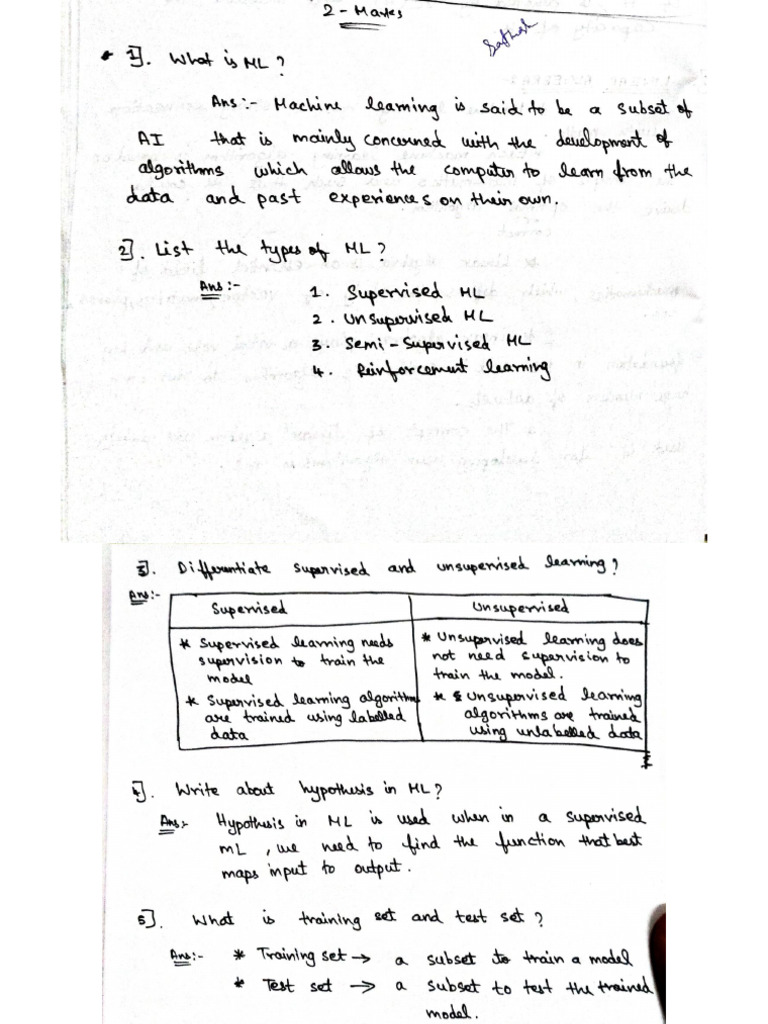 2 - Marks
Sathish
* 1]. What is ML?
Ans :- Machine learning is said to be a subset of
AI that is mainly concerned with the development of
algorithms which allows the computer to learn from the
data and past experiences on their own.
2]. List the types of ML?
Ans :- 1. Supervised ML
2. Unsupervised ML
3. Semi-Supervised ML
4. Reinforcement learning
3]. Differentiate supervised and unsupervised learning?
Ans :-
Supervised Unsupervised
* Supervised learning needs
supervision to train the
model
* Supervised learning algorithms
are trained using labelled
data
* Unsupervised learning does
not need supervision to
train the model.
* Unsupervised learning
algorithms are trained
using unlabelled data
4]. Write about hypothesis in ML?
Ans :- Hypothesis in ML is used when in a supervised
ML, we need to find the function that best
maps input to output.
5]. What is training set and test set?
Ans :- * Training set → a subset to train a model
* Test set → a subset to test the trained
model.